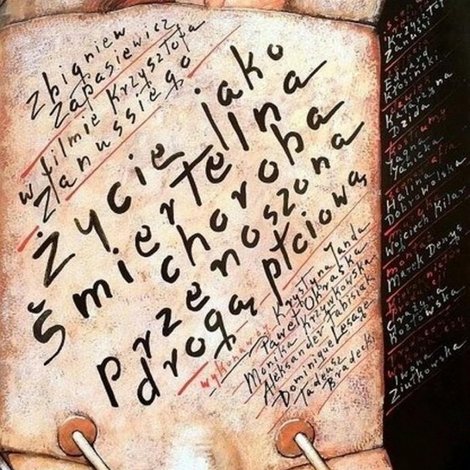 Zbigniew
Zapasiewicz
w filmie Krzysztofa
Zanussiego
Życie jako
śmiertelna
choroba
przenoszona
drogą płciową
wykonawcy Krystyna Janda
Paweł Okraska
Monika Krzywkowska
Aleksander Fabisiak
Dominique Lesage
Tadeusz
Bradecki
Krzysztof
Zanussi
Edward
Kłosiński
Halina
Dobrowolska
Wojciech Kilar
Marek Denys
Grażyna
Kozłowska
Iwona
Ziułkowska